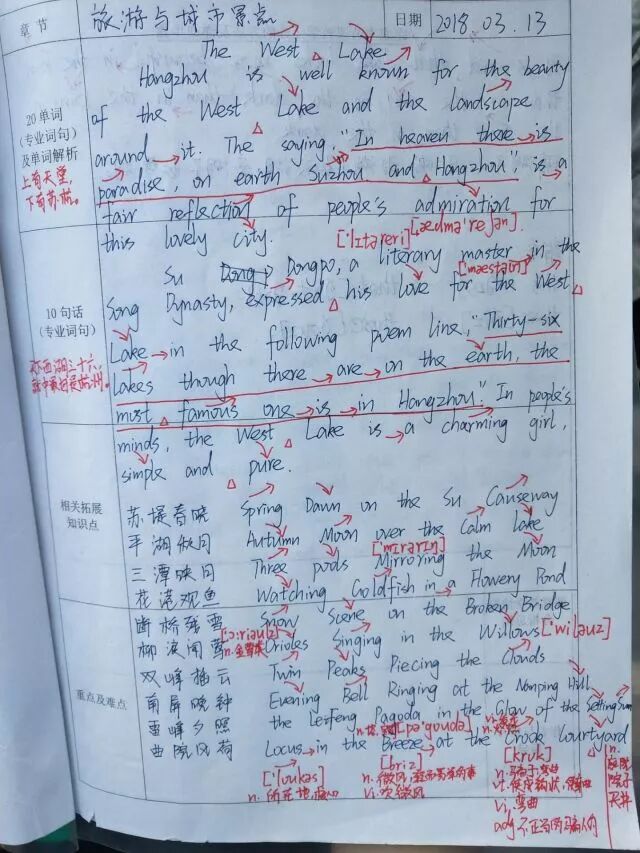 章节 旅游与城市景点 日期 2018.03.13
The West Lake
Hangzhou is well known for the beauty
of the West Lake and the landscape
20单词
(专业词句)
及单词解析
around it. The saying, "In heaven there is
上有天堂,
下有苏杭。
paradise, on earth Suzhou and Hangzhou", is a
fair reflection of people's admiration for
this lovely city. ['lɪtəreri] [ˌædmə'reʃən]
Su Dongpo, a literary master in the
Song Dynasty, expressed his love for the West
10句话
(专业词句)
Lake in the following poem line, "Thirty-six
Lakes though there are on the earth, the
most famous one is in Hangzhou." In people's
minds, the West Lake is a charming girl,
simple and pure.
相关拓展
知识点
苏堤春晓 Spring Dawn on the Su Causeway
平湖秋月 Autumn Moon over the Calm Lake
三潭映月 Three pods Mirroring the Moon
花港观鱼 Watching Goldfish in a Flowery Pond
断桥残雪 Snow Scene on the Broken Bridge
柳浪闻莺 Orioles Singing in the Willows
双峰插云 Twin Peaks Piecing the Clouds
重点及难点
南屏晚钟 Evening Bell Ringing at the Nanping Hill
雷峰夕照 the Leifeng Pagoda in the Glow of the Setting Sun
曲院风荷 Locus in the Breeze at the Crook Courtyard
['loukəs] [briz] [kruk]
n. 所在地
n. 微风
vi. 吹微风
vi. 弯曲